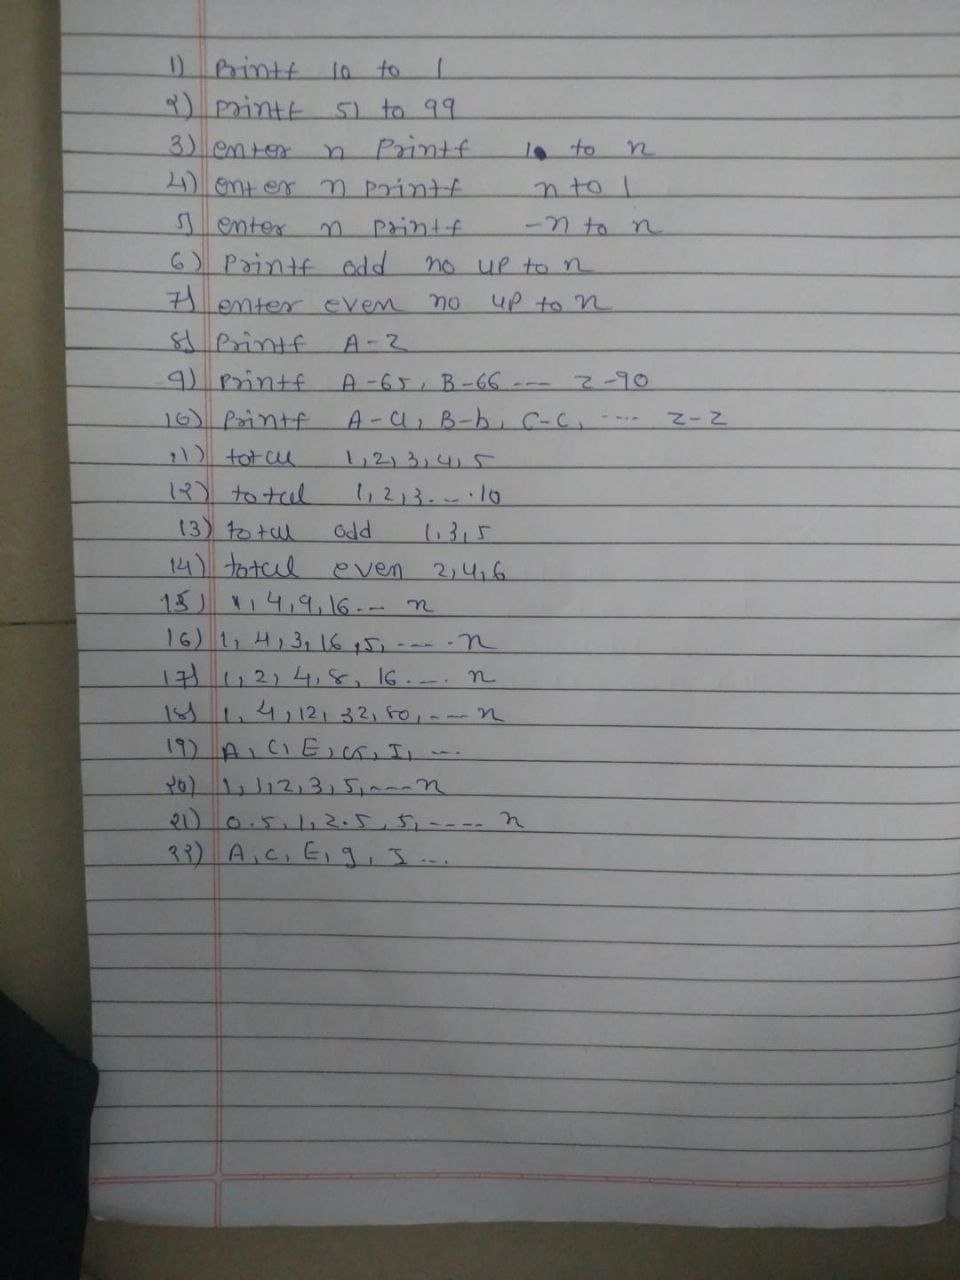 1) Printf 10 to 1
2) printf 51 to 99
3) enter n Printf 1 to n
4) enter n printf n to 1
5) enter n printf -n to n
6) Printf odd no up to n
7) enter even no up to n
8) Printf A-Z
9) printf A-65, B-66 --- Z-90
10) Printf A-a, B-b, C-c, ---- Z-z
11) total 1,2,3,4,5
12) total 1,2,3.--.10
13) total odd 1,3,5
14) total even 2,4,6
15) 1,4,9,16.-- n
16) 1, 4, 3, 16, 5, ---- n
17) 1, 2, 4, 8, 16.--. n
18) 1, 4, 12, 32, 80, --- n
19) A, C, E, G, I, ---
20) 1, 1, 2, 3, 5, ---- n
21) 0.5, 1, 2.5, 5, ---- n
22) A, c, E, g, I ---